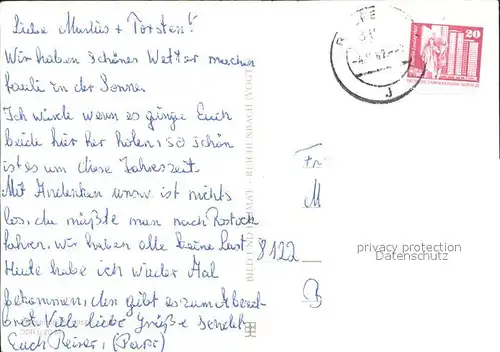 Liebe Markus + Torsten!
Wir haben schönes Wetter machen
fauli in der Sonne.
Ich würde wenn es ginge Euch
beide hier her holen, so schön
ist es um diese Jahreszeit.
Mit Andenken usw ist nichts
los, da müßte man nach Rostock
fahren. Wir haben alle keine Lust
Heute habe ich wieder Aal
bekommen, den gibt es zum Abend-
brot. Viele liebe Grüße sendet
Euch Reiner, (Papi)
BILD UND HEIMAT REICHENBACH (VOGTL)
20
8122
M
privacy protection
Datenschutz